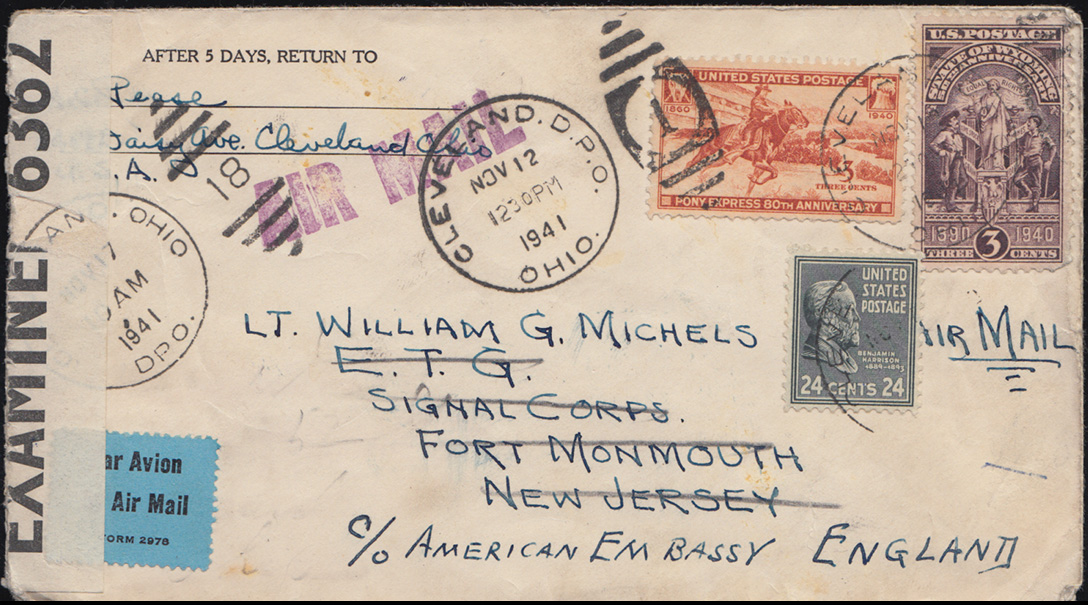 AFTER 5 DAYS, RETURN TO
Pease
Daisy Ave. Cleveland Ohio
.A.
EXAMINER 6362
18
AIR MAIL
CLEVELAND. D.P.O. OHIO.
NOV 12
12 30 PM
1941
1
UNITED STATES POSTAGE
1860 1940
3
THREE CENTS
PONY EXPRESS 80TH ANNIVERSARY
U.S. POSTAGE
STATE OF WYOMING
50TH ANNIVERSARY
1890 1940
THREE 3 CENTS
UNITED
STATES
POSTAGE
BENJAMIN
HARRISON
1889-1893
24 CENTS 24
AIR MAIL
OHIO
17
AM
1941
D.P.O.
LT. WILLIAM G. MICHELS
E.T.G.
SIGNAL CORPS.
FORT MONMOUTH
NEW JERSEY
C/O AMERICAN EMBASSY ENGLAND
ar Avion
Air Mail
ORM 2978